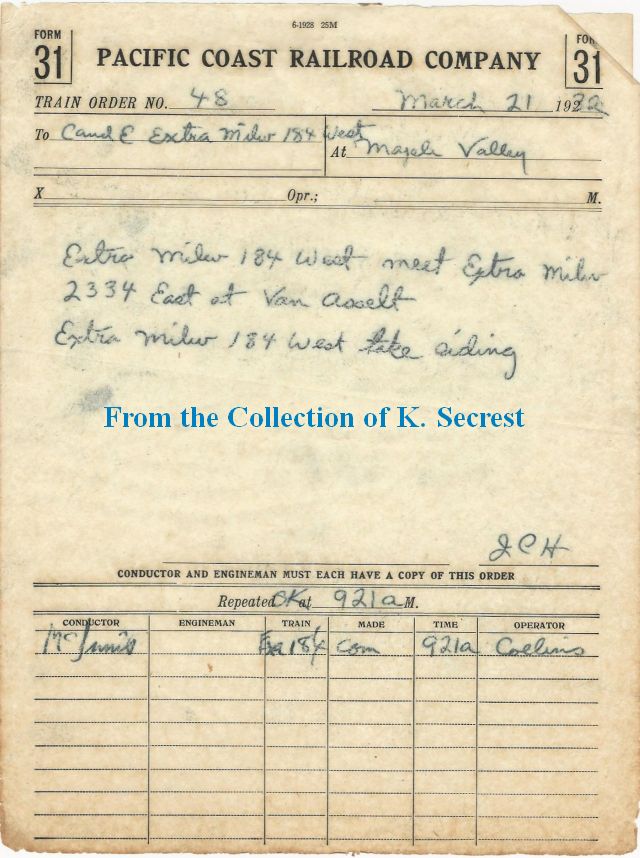 6-1928 25M
FORM 31 PACIFIC COAST RAILROAD COMPANY FORM 31
TRAIN ORDER NO. 48 March 21 1932
To C and E Extra Milw 184 West At Maple Valley
X Opr.; M.
Extra Milw 184 West meet Extra Milw
2334 East at Van Asselt
Extra Milw 184 West take siding
From the Collection of K. Secrest
JCH
CONDUCTOR AND ENGINEMAN MUST EACH HAVE A COPY OF THIS ORDER
Repeated OK at 921a M.
CONDUCTOR ENGINEMAN TRAIN MADE TIME OPERATOR
184 Com 921a Collins